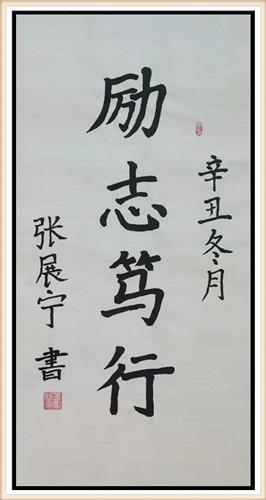 辛丑冬月
励志笃行
张展宁 書